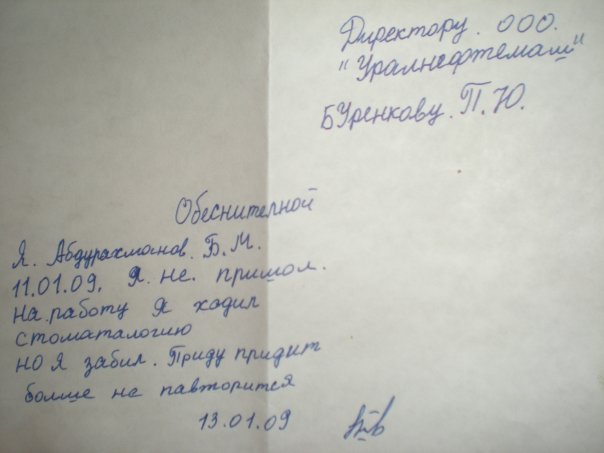 Директору. ООО.
"Уралнефтемаш"
Буренкову. П.Ю.
Обеснителной
Я. Абдурахманов. Б.М.
11.01.09. Я. не. пришол.
на.работу Я ходил
стоматалогию
но я забил. Приду придит
болше не павторится
13.01.09